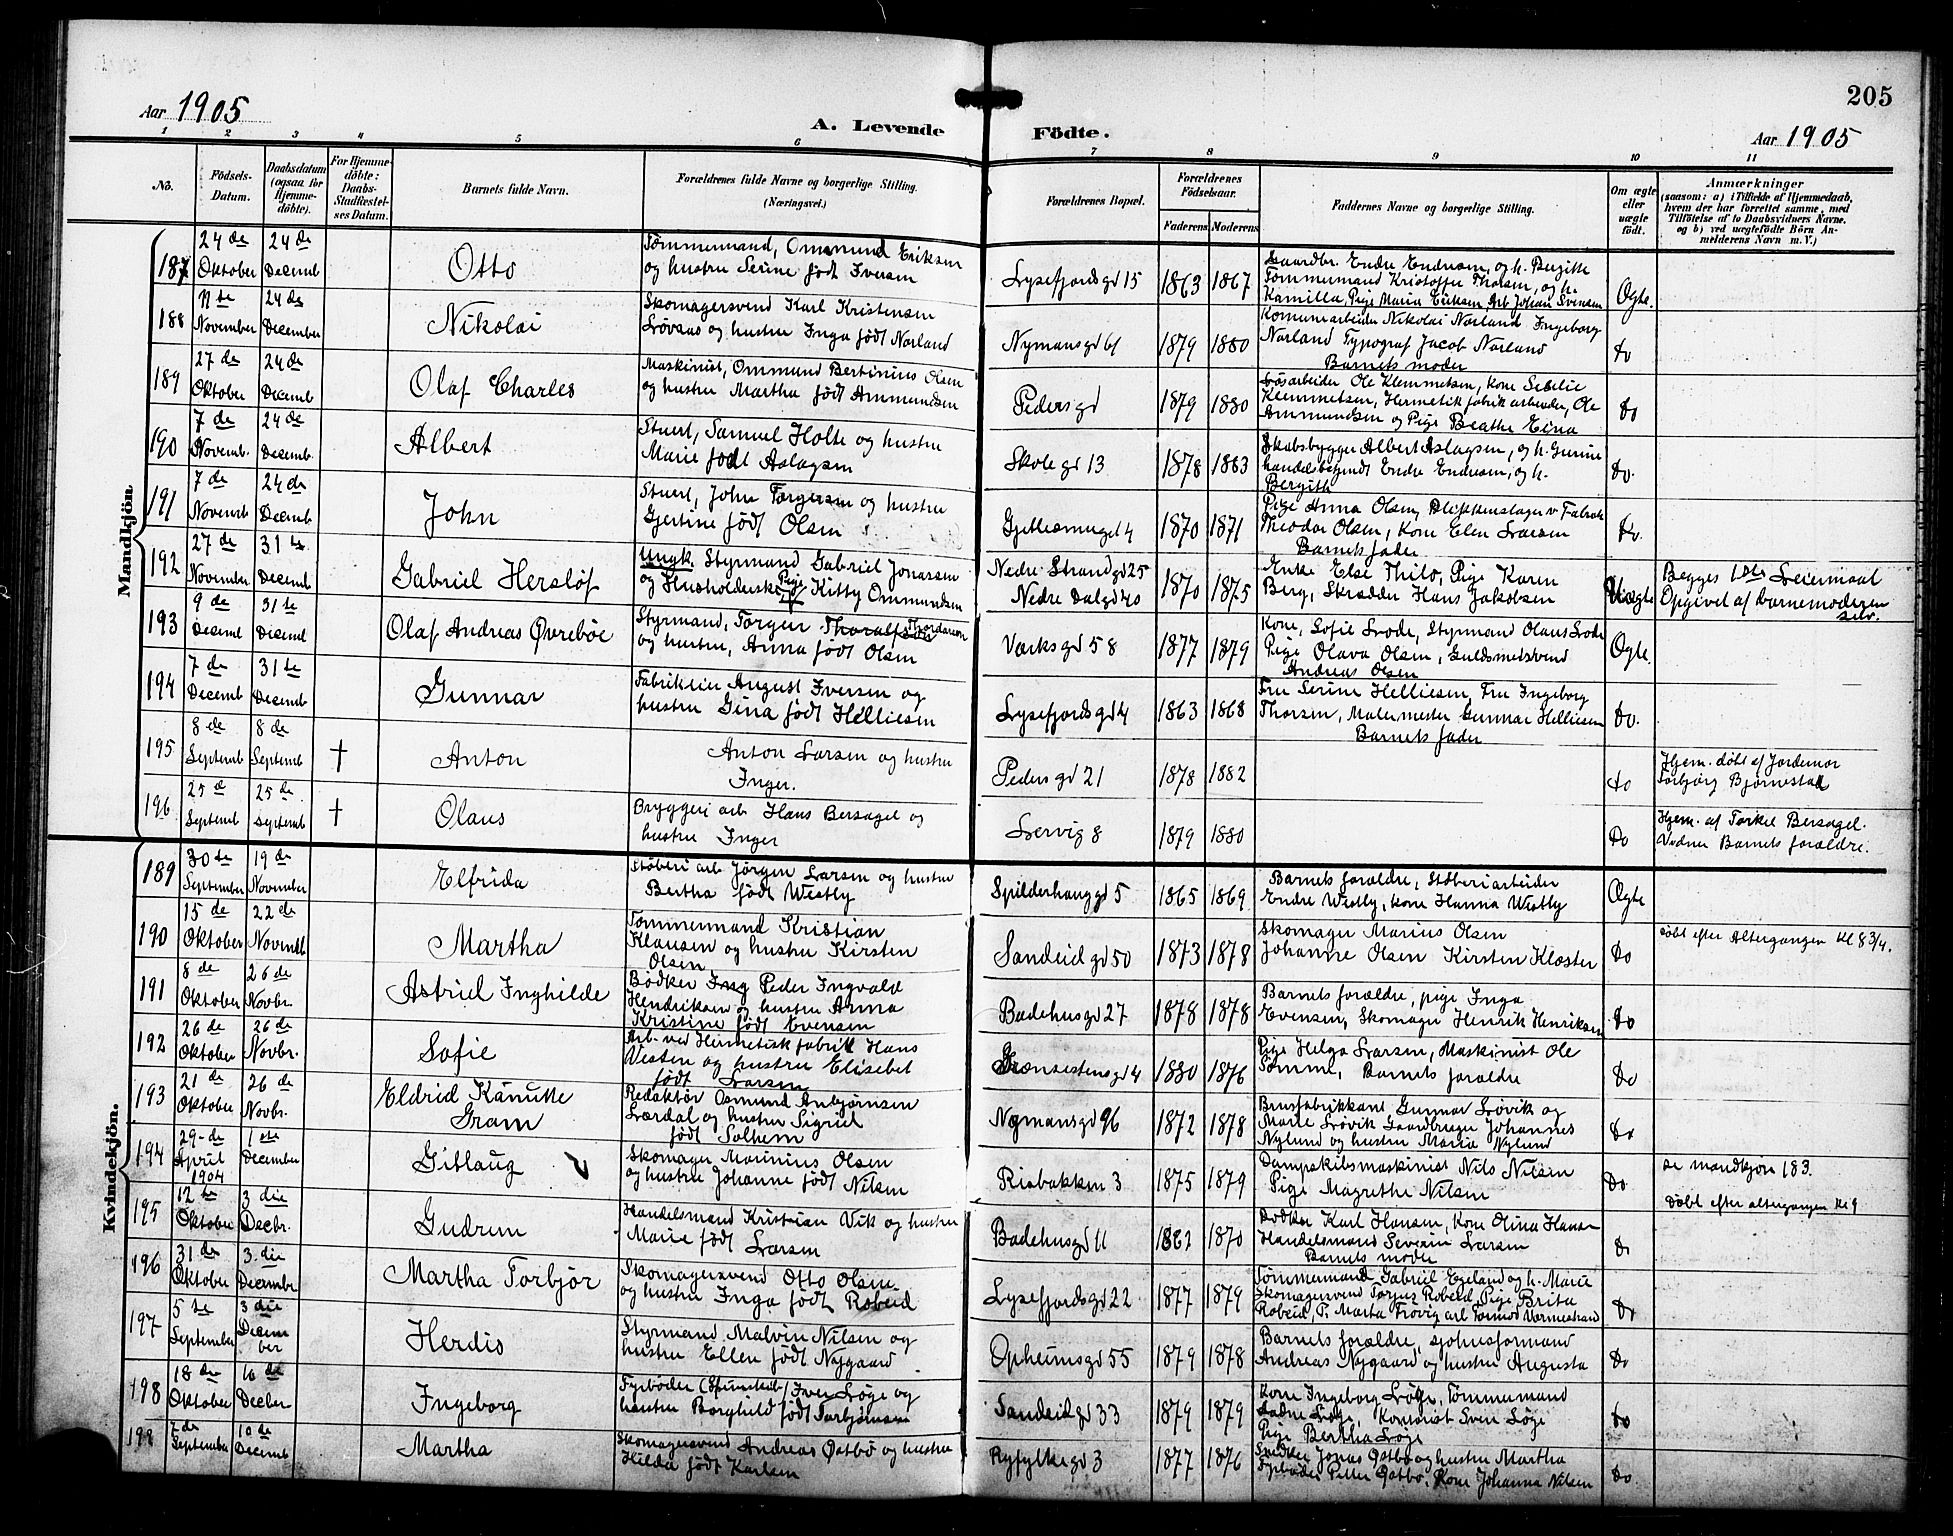 205
Aar 1905
A. Levende Födte.
Aar 1905
1 2 3 4 5 6 7 8 9 10 11
No.
Födsels-Datum.
Daabsdatum (ogsaa for Hjemme-döbte).
For Hjemme-döbte: Daabs-Stadfæstel-ses Datum.
Barnets fulde Navn.
Forældrenes fulde Navne og borgerlige Stilling. (Næringsvei.)
Forældrenes Bopæl.
Forældrenes Födselsaar.
Faderens Moderens
Faddernes Navne og borgerlige Stilling.
Om ægte eller uægte født.
Anmærkninger
(saasom: a) i Tilfælde af Hjemmedaab, hvem der har forrettet samme, med Tilföielse af to Daabsvidners Navne. og b) ved uægtefödte Börn Anmelderens Navn m. V.)
Mandkjön
187 24de Oktober 24de Decemb Otto Tømmermand, Omsund Eriksen og hustru Serine født Iversen Lysefjordsgd 15 1863 1867 Gaardbr. Endre Endresen, og h. Bergitte Tømmermand Kristoffer Thorsen, og h. Kamilla, Pige Maria Eriksen, Arb. Johan Svensen Ægte.
188 11te November 24de December Nikolai Skomagersvend Karl Kristensen Løvaas og hustru Inga født Norland Nymansgd 61 1879 1880 Komunearbeider Nikolai Norland Ingeborg Norland Typograf Jacob Norland Barnets moder do
189 27de Oktober 24de Decemb Olaf Charles Maskinist, Ommund Bertinius Olsen og hustru Martha født Ammundsen Pedersgd 1879 1880 Løsarbeider Ole Klemmetsen, kone Sebelie Klemmetsen, Hermetikfabrikarbeider, Ole Ammundsen og Pige Beathe Eina Do
190 7de Novemb. 24de Decemb. Albert Stuert, Samuel Holte og hustru Marie født Aslagsen Skolegd 13 1878 1883 Skabsbygger Albert Aslagsen, og h. Gurine handelsbetjendt Endre Endresen, og h. Bergith Do.
191 7de Novemb 24de Decemb John Stuert, John Torgersen og hustru Gjertine født Olsen 1870 1871 Pige Anna Olsen, Blikkenslager v Fabrik Theodor Olsen, Kone Elen Larsen Barnets fader Do.
192 27de November 31te December Gabriel Hersløf Ungk. Styrmand Gabriel Jonassen og Husholderske Pige Kitty Ommundsen Nedre Strandgd 25 Nedre Dalgd 40 1870 1875 Enke Else Thilo, Pige Karen Berg, Skrædder Hans Jakobsen Uægte Begges 1ste Leiermaal Opgivet af Barnemoderen selv.
193 9de Decemb 31te Decemb Olaf Andreas Øvrebøe Styrmand, Torger Thordarson og hustru, Anna født Olsen Værksgd 58 1877 1879 Kone, Sofie Lode, Styrmand Olaus Lode Pige Olava Olsen, Guldsmedsvend Andreas Olsen Ægte.
194 7de Decemb 31te Decemb Gunnar Fabrikeier August Iversen og hustru Gina født Helliesen Lysefjordsgd 4 1863 1868 Fru Serine Helliesen, Fru Ingeborg Thorsen, Malermester Gunnar Helliesen Barnets fader Do.
195 8de Septemb 8de Septemb † Anton Anton Larsen og hustru Inger. Pedersgd 21 1878 1882 do Hjem. døbt af Jordemor Torbjørg Bjørnestad
196 25de Septemb 25de Septemb † Olaus Bryggeri arb Hans Bersagel og hustru Inger Lervig 8 1879 1880 Do Hjem. af Torkel Bersagel. Vidner Barnets forældre.
Kvindekjön.
189 30te September 19de November Elfrida Støberi arb Jørgen Larsen og hustru Bertha født Westly Spilderhauggd 5 1865 1869 Barnets forældre, Støberiarbeider Endre Westly, kone Hanna Westly Ægte
190 15de Oktober 22de Novemb Martha Tømmermand Kristian Klausen og hustru Kirsten Olsen Sandeidgd 50 1873 1878 Skomager Marius Olsen Johanne Olsen Kirsten Kloster Do døbt efter Altergangen Kl 8 3/4.
191 8de Oktober 26de Novbr. Astrid Inghilde Bødker Ing Peder Ingvald Hendriksen og hustru Anna Kristine født Evensen Badehusgd 27 1878 1878 Barnets forældre, pige Inga Evensen, Skomager Henrik Henriksen do
192 26de Oktober 26de Novbr. Sofie Arb. ved Hermetikfabrik Hans Vesten og hustru Elisebet født Larsen 1880 1876 Pige Helga Larsen, Maskinist Ole Tømme, Barnets forældre Do
193 21de Oktober 26de Novbr. Eldrid Kanutte Gram Redaktør Osmund Anbjørnsen Lærdal og hustru Sigrid født Solhem Nymansgd 96 1872 1878 Brusfabrikkant Gunnar Løvik og Marie Løvik Gaardbruger Johannes Nylund og hustru Maria Nylund Do
194 29de April 1904 1ste December Gitlaug Skomager Marinius Olsen og hustru Johanne født Nilsen Risbakken 3 1875 1879 Dampskibsmaskinist Nils Nilsen Pige Magrethe Nilsen Do se mandkjøn 183.
195 12te Oktober 3die Decbr. Gudrun Handelsmand Kristian Vik og hustru Marie født Larsen Badehusgd 11 1870 Bødker Karl Hansen, Kone Olina Hansen Handelsmand Severin Larsen Barnets moder Do Døbt efter altergangen Kl 9
196 31de Oktober 3die December Martha Torbjør Skomagersvend Otto Olsen og hustru Inga født Robeid Lysefjordsgd 22 1877 1879 Tømmermand Gabriel Egeland og h. Marie Skomagersvend Torjus Robeid, Pige Brita Robeid, P. Marta Frøvig arb Tormod Varmestrand Do
197 5te September 3die December Herdis Styrmand Malvin Nilsen og hustru Ellen født Nygaard Opheimsgd 55 1879 1878 Barnets forældre, sjøhusformand Andreas Nygaard og hustru Augusta Do
198 18de Oktober 10de Decber Ingeborg Fyrbøder Iver Løge og hustru Borghild født Torbjørnsen Sandeidgd 33 1879 1879 Kone Ingeborg Løge, Tømmermand Løge, Kontorist Sven Løge Pige Bertha Løge do
199 7de September 10de Decemb Martha Skomagersvend Andreas Østbø og hustru Hilda født Karlsen Ryfylkegd 3 1877 1876 Snedker Jonas Østbø og hustru Martha Fyrbøder Petter Østbø, Kone Johanna Nilsen do